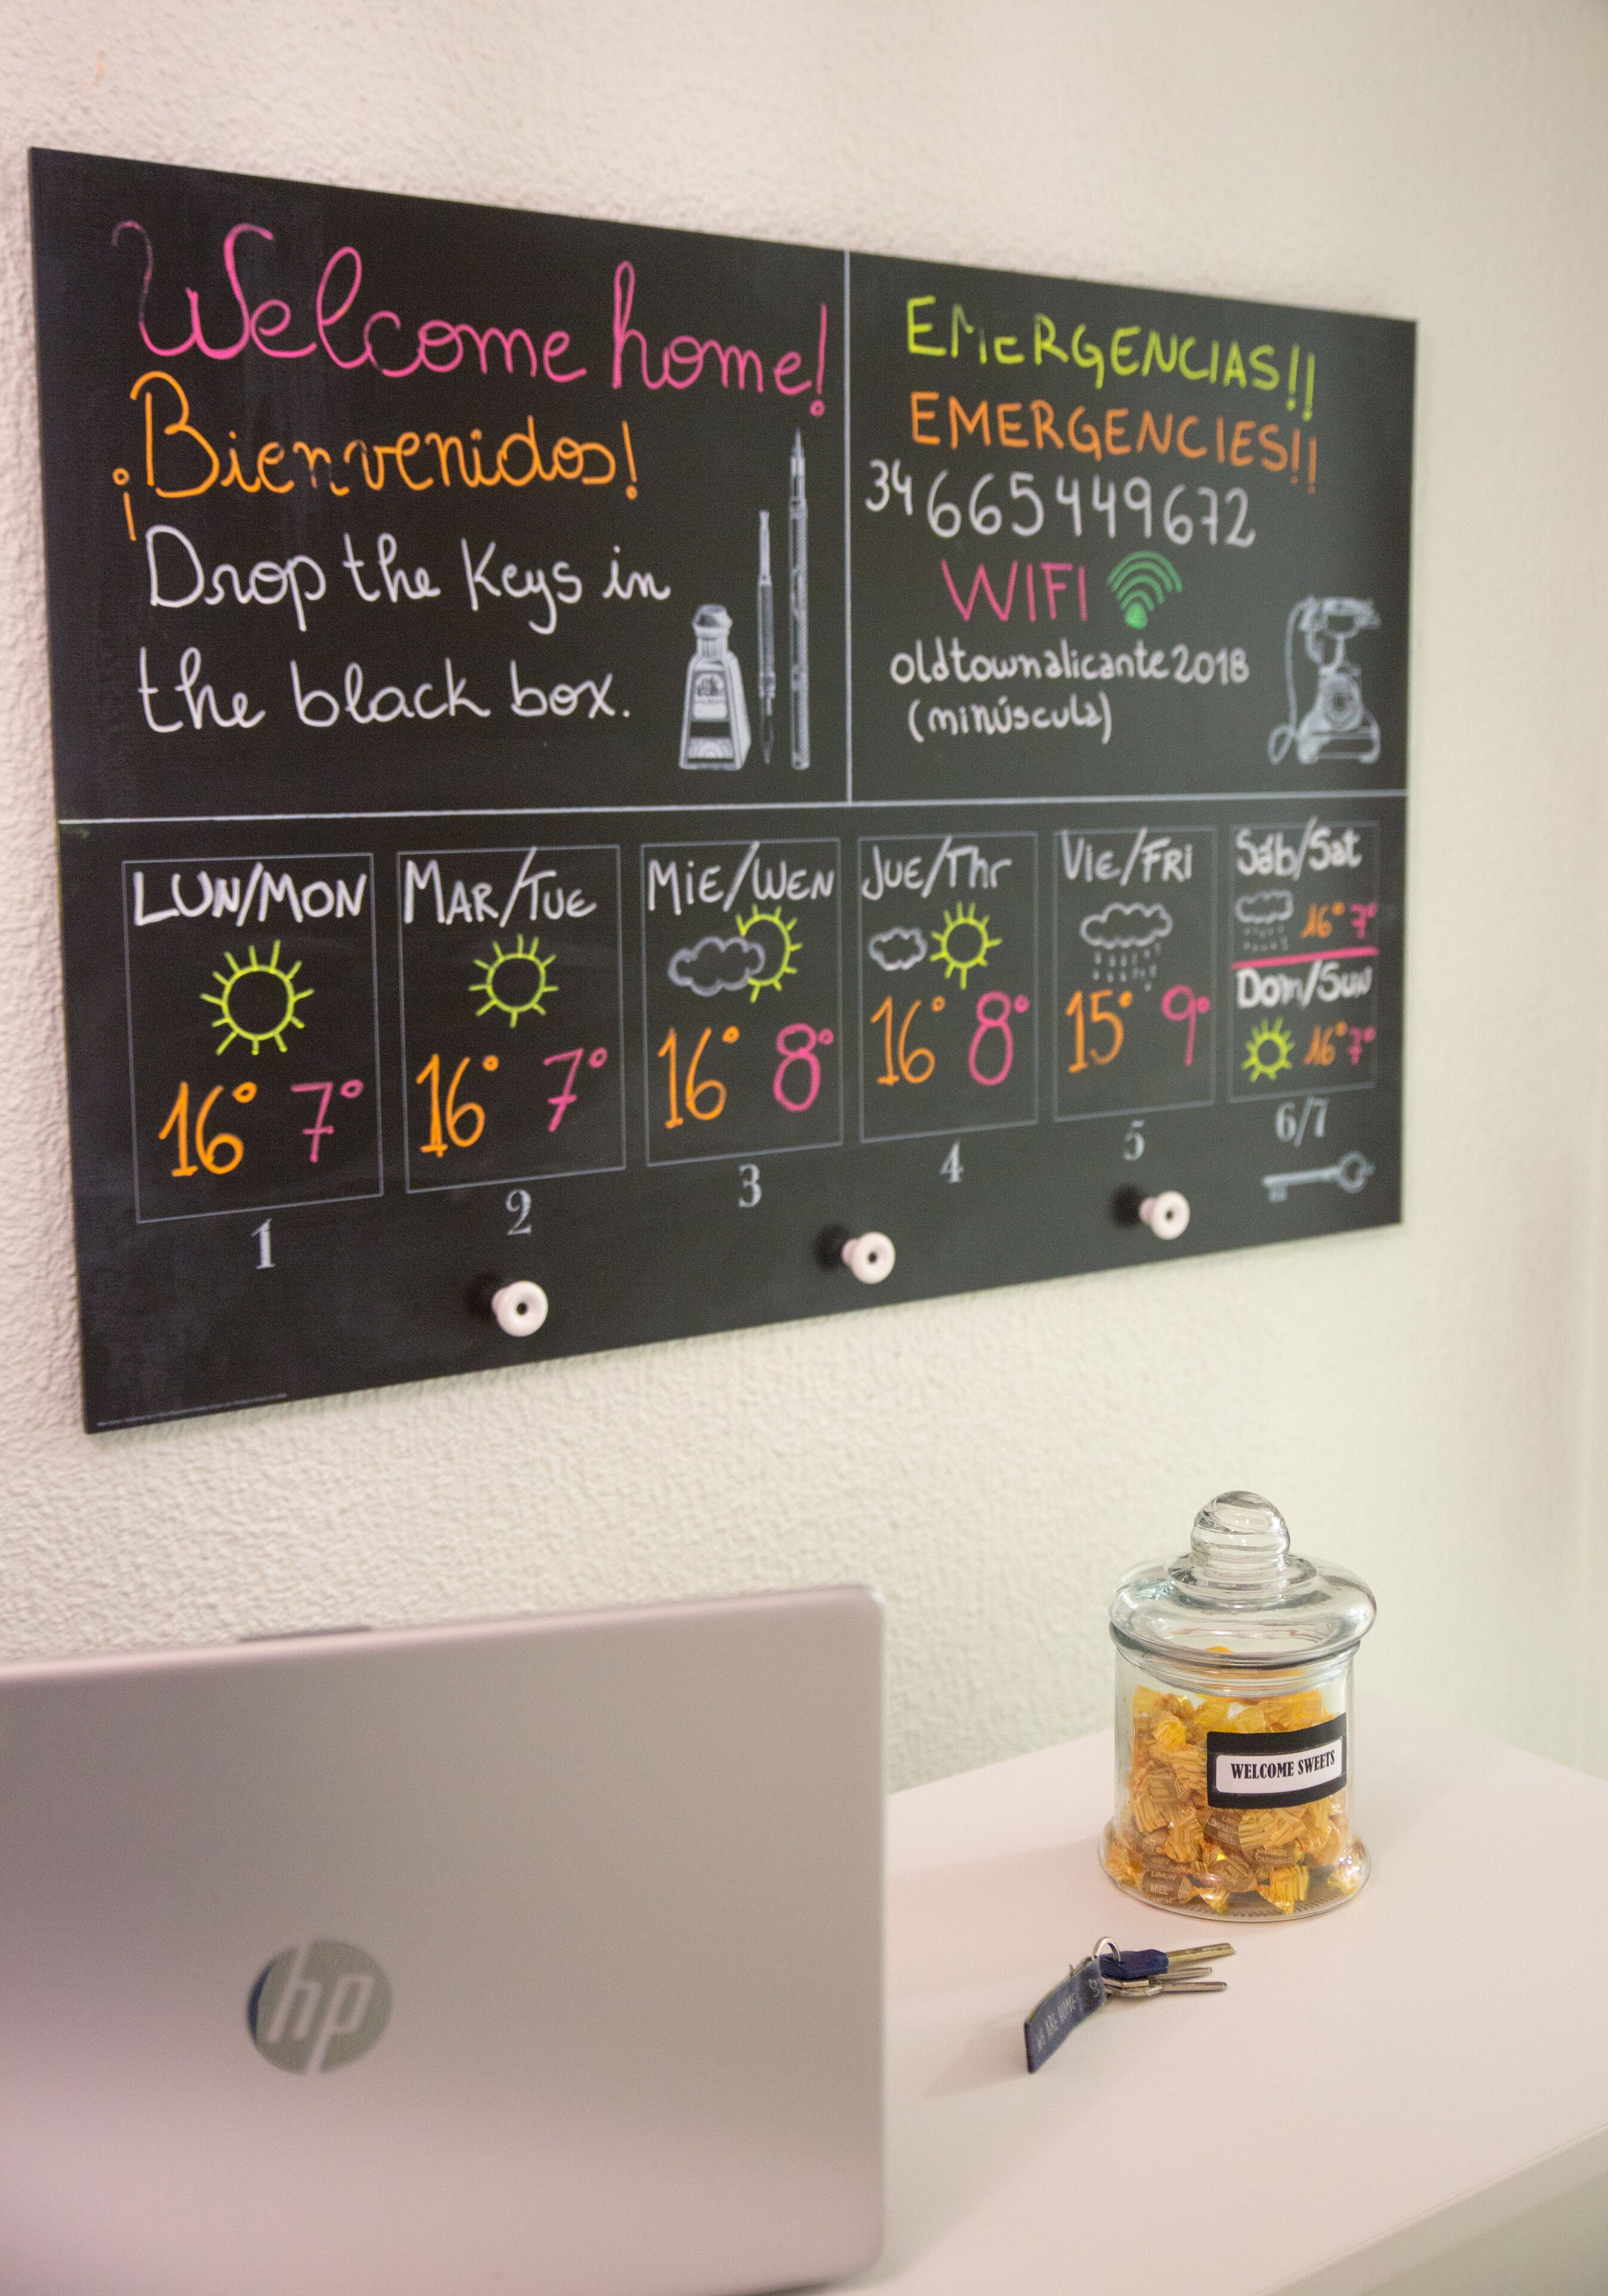 Welcome home!
¡Bienvenidos!
Drop the Keys in
the black box.
EMERGENCIAS!!
EMERGENCIES!!
34 665449672
WIFI
oldtownalicante2018
(minúscula)
LUN/MON
16° 7°
1
MAR/TUE
16° 7°
2
MIE/WEN
16° 8°
3
JUE/Thr
16° 8°
4
VIE/FRI
15° 9°
5
Sáb/Sat
16° 7°
Dom/Sun
16° 7°
6/7
WELCOME SWEETS
MIEL
WE ARE HOME
hp